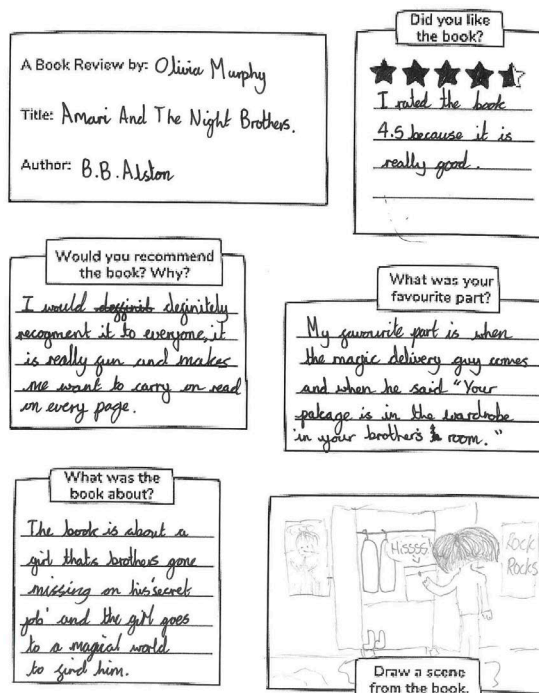 A Book Review by: Olivia Murphy
Title: Amari And The Night Brothers.
Author: B.B. Alston
Did you like
the book?
I rated the book
4.5 because it is
really good.
Would you recommend
the book? Why?
I would definitely
recogment it to everyone, it
is really fun and makes
me want to carry on read
on every page.
What was your
favourite part?
My favourite part is when
the magic delivery guy comes
and when he said "Your
pakage is in the wardrobe
in your brother's room."
What was the
book about?
The book is about a
girl thats brothers gone
missing on his 'secret
job' and the girl goes
to a magical world
to find him.
Hissss!
Rock
Rocks
Draw a scene
from the book.